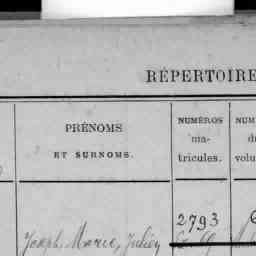 RÉPERTOIRE
PRÉNOMS
ET SURNOMS.
NUMÉROS
ma-
tricules.
NUM
d
volu
2793
Joseph, Marie, Julien